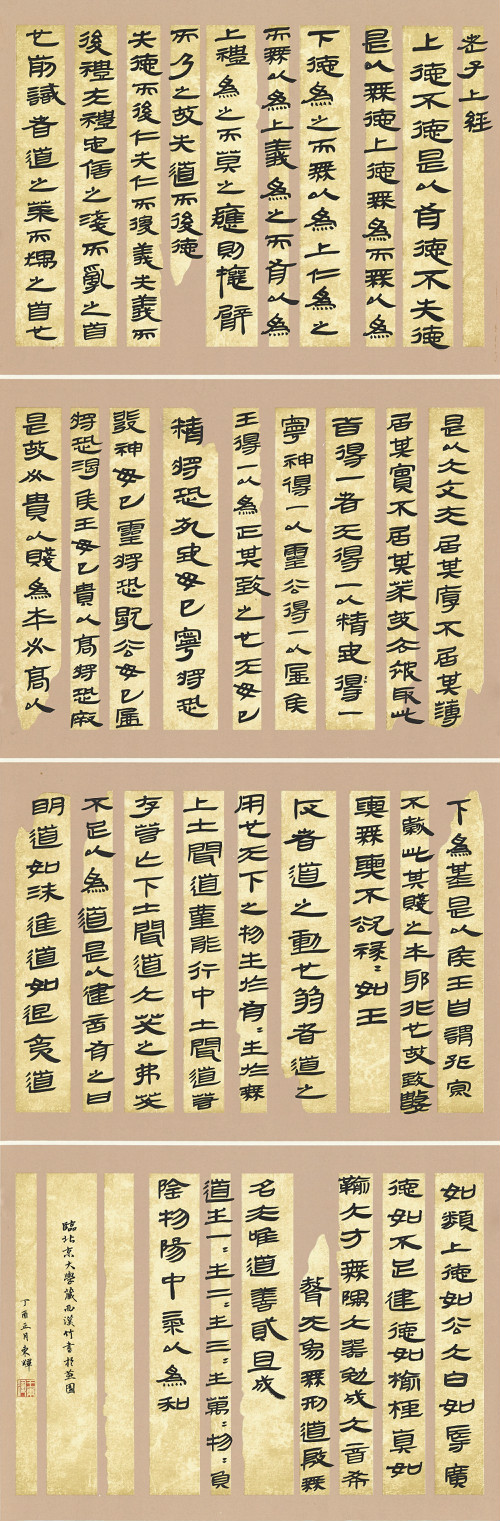 老子上經
上德不德是以有德不失德
是以無德上德無為而無以為
下德為之而無以為上仁為之
而無以為上義為之而有以為
上禮為之而莫之應則攘臂
而乃之故失道而後德
失德而後仁失仁而後義失義而
後禮夫禮忠信之淺而亂之首
也前識者道之華而愚之首也
是以大丈夫居其厚不居其薄
居其實不居其華故去被取此
昔得一者天得一以精地得=一
寧神得一以靈谷得一以盈侯
王得一以為正其致之也天毋已
精將恐死地毋已寧將恐
發神毋已靈將恐歇谷毋已盈
將恐渴侯王毋已貴以高將恐蹶
是故必貴以賤為本必高以
下為基是以侯王自謂孤寡
不穀此其賤之本邪非也故致數
輿無輿不欲祿=如玉
反者道之動也弱者道之
用也天下之物生於有=生於無
上士聞道堇能行中士聞道若
存若亡下士聞道大笑之弗笑
不足以為道是以建言有之曰
明道如沬進道如退夷道
如類上德如谷大白如辱廣
德如不足建德如榆桎真如
輸大方無隅大器勉成大音希
聲天象無形道殷無
名夫唯道善貸且成
道生一=生二=生三=生萬=物=負
陰抱陽中氣以為和
臨北京大學藏西漢竹書於燕園
丁酉正月東輝